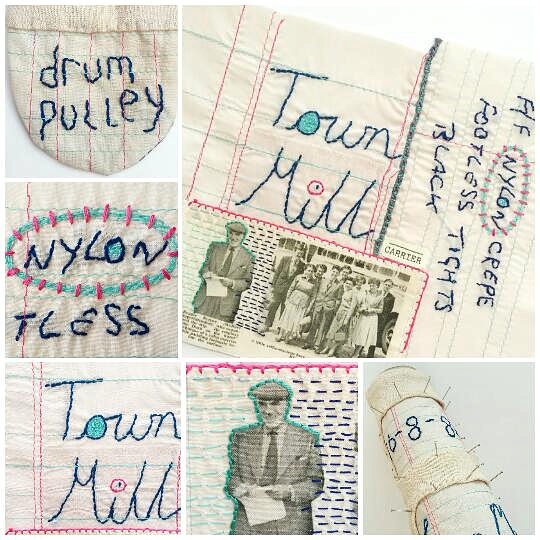 drum
PULLEY
Town
Mill
CARRIER
F/F NYLON CREPE
FOOTLESS TIGHTS
BLACK
NYLON
TLESS
Town
Mill
6-8-8